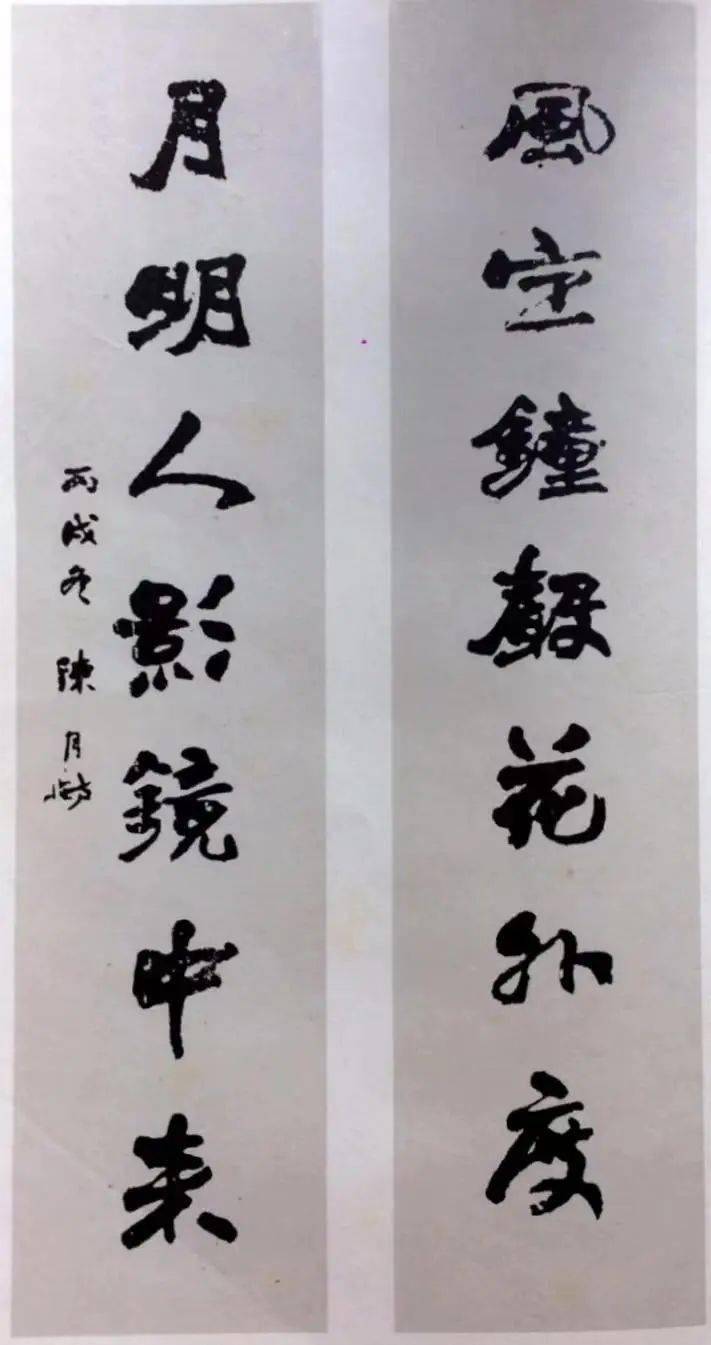 風定鐘聲花外度
月明人影鏡中来
丙戌冬 陳月